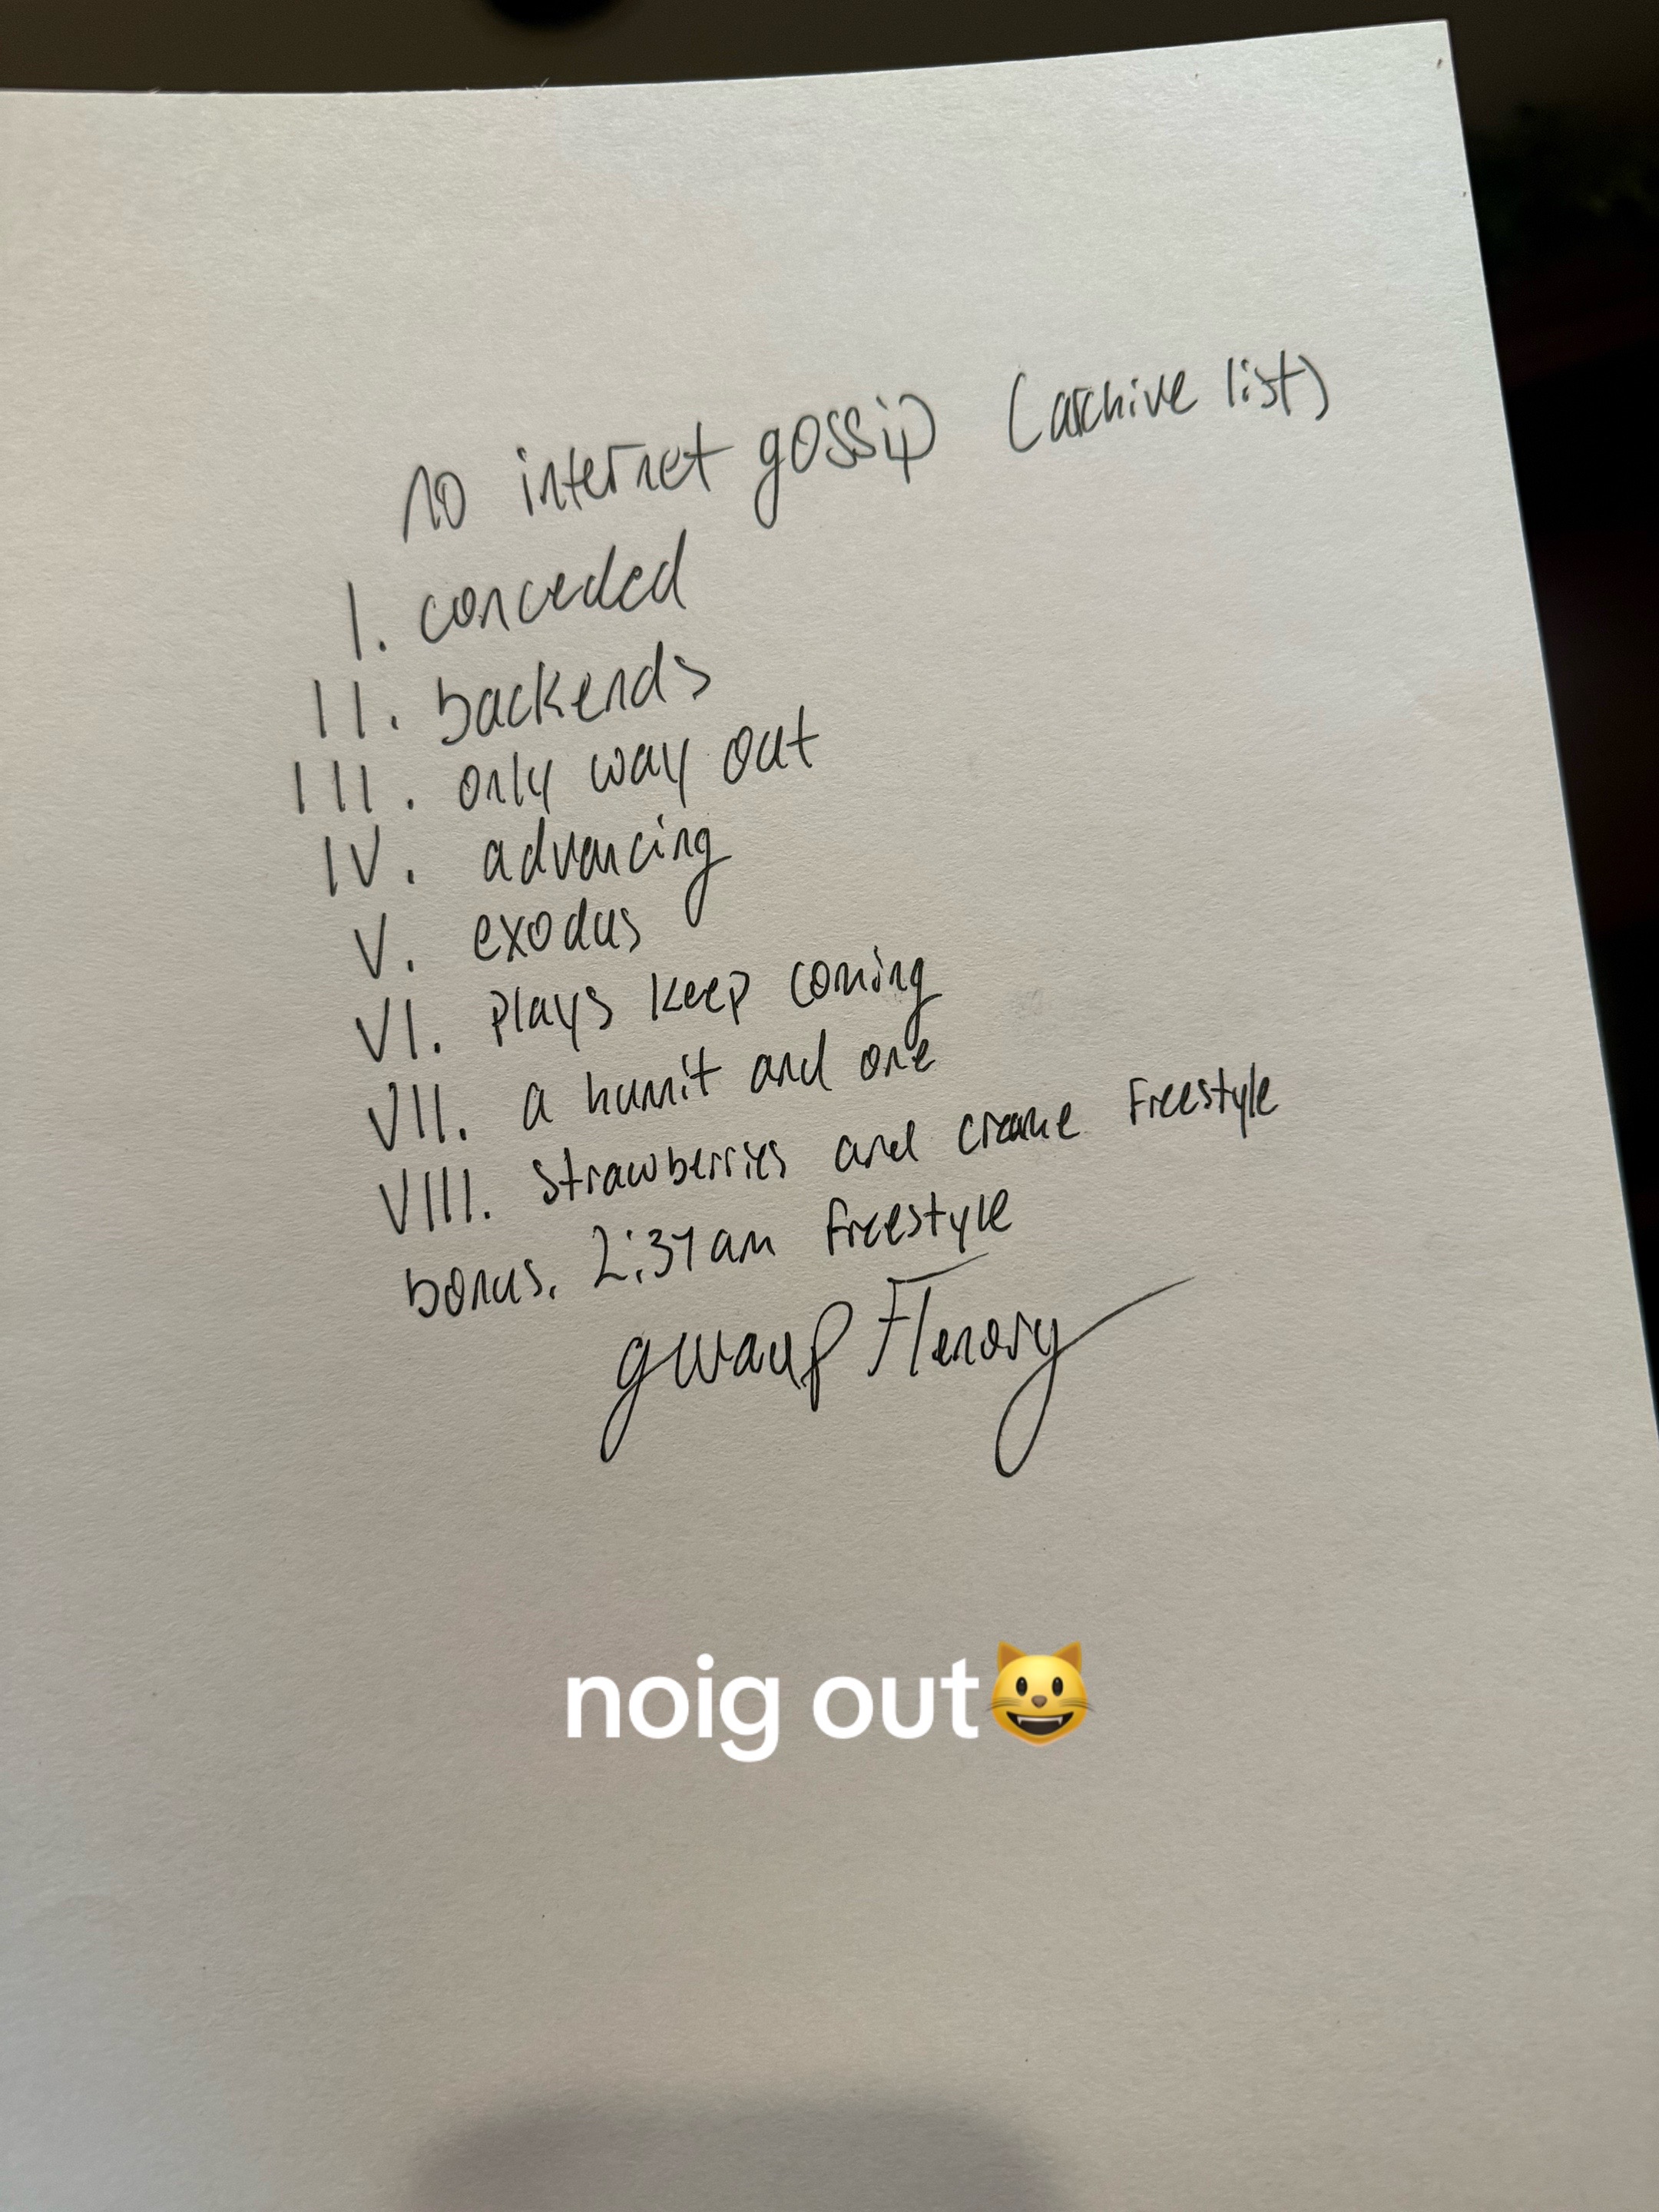 no internet gossip (archive list)
I. conceded
II. backends
III. only way out
IV. advancing
V. exodus
VI. plays keep coming
VII. a hunnit and one
VIII. strawberries and creame freestyle
bonus. 2:37am freestyle
gwaup Flenory
noig out😺